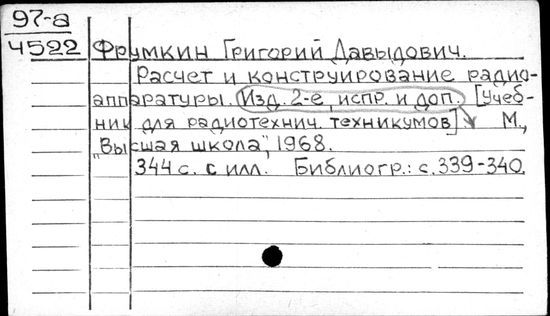 97-а
4522 Фрумкин Григорий Давыдович.
Расчет и конструирование радио-
аппаратуры. Изд. 2-е, испр. и доп. [Учеб-
ник для радиотехнич. техникумов] М.,
"Высшая школа", 1968.
344 с. с илл. Библиогр.: с. 339-340.